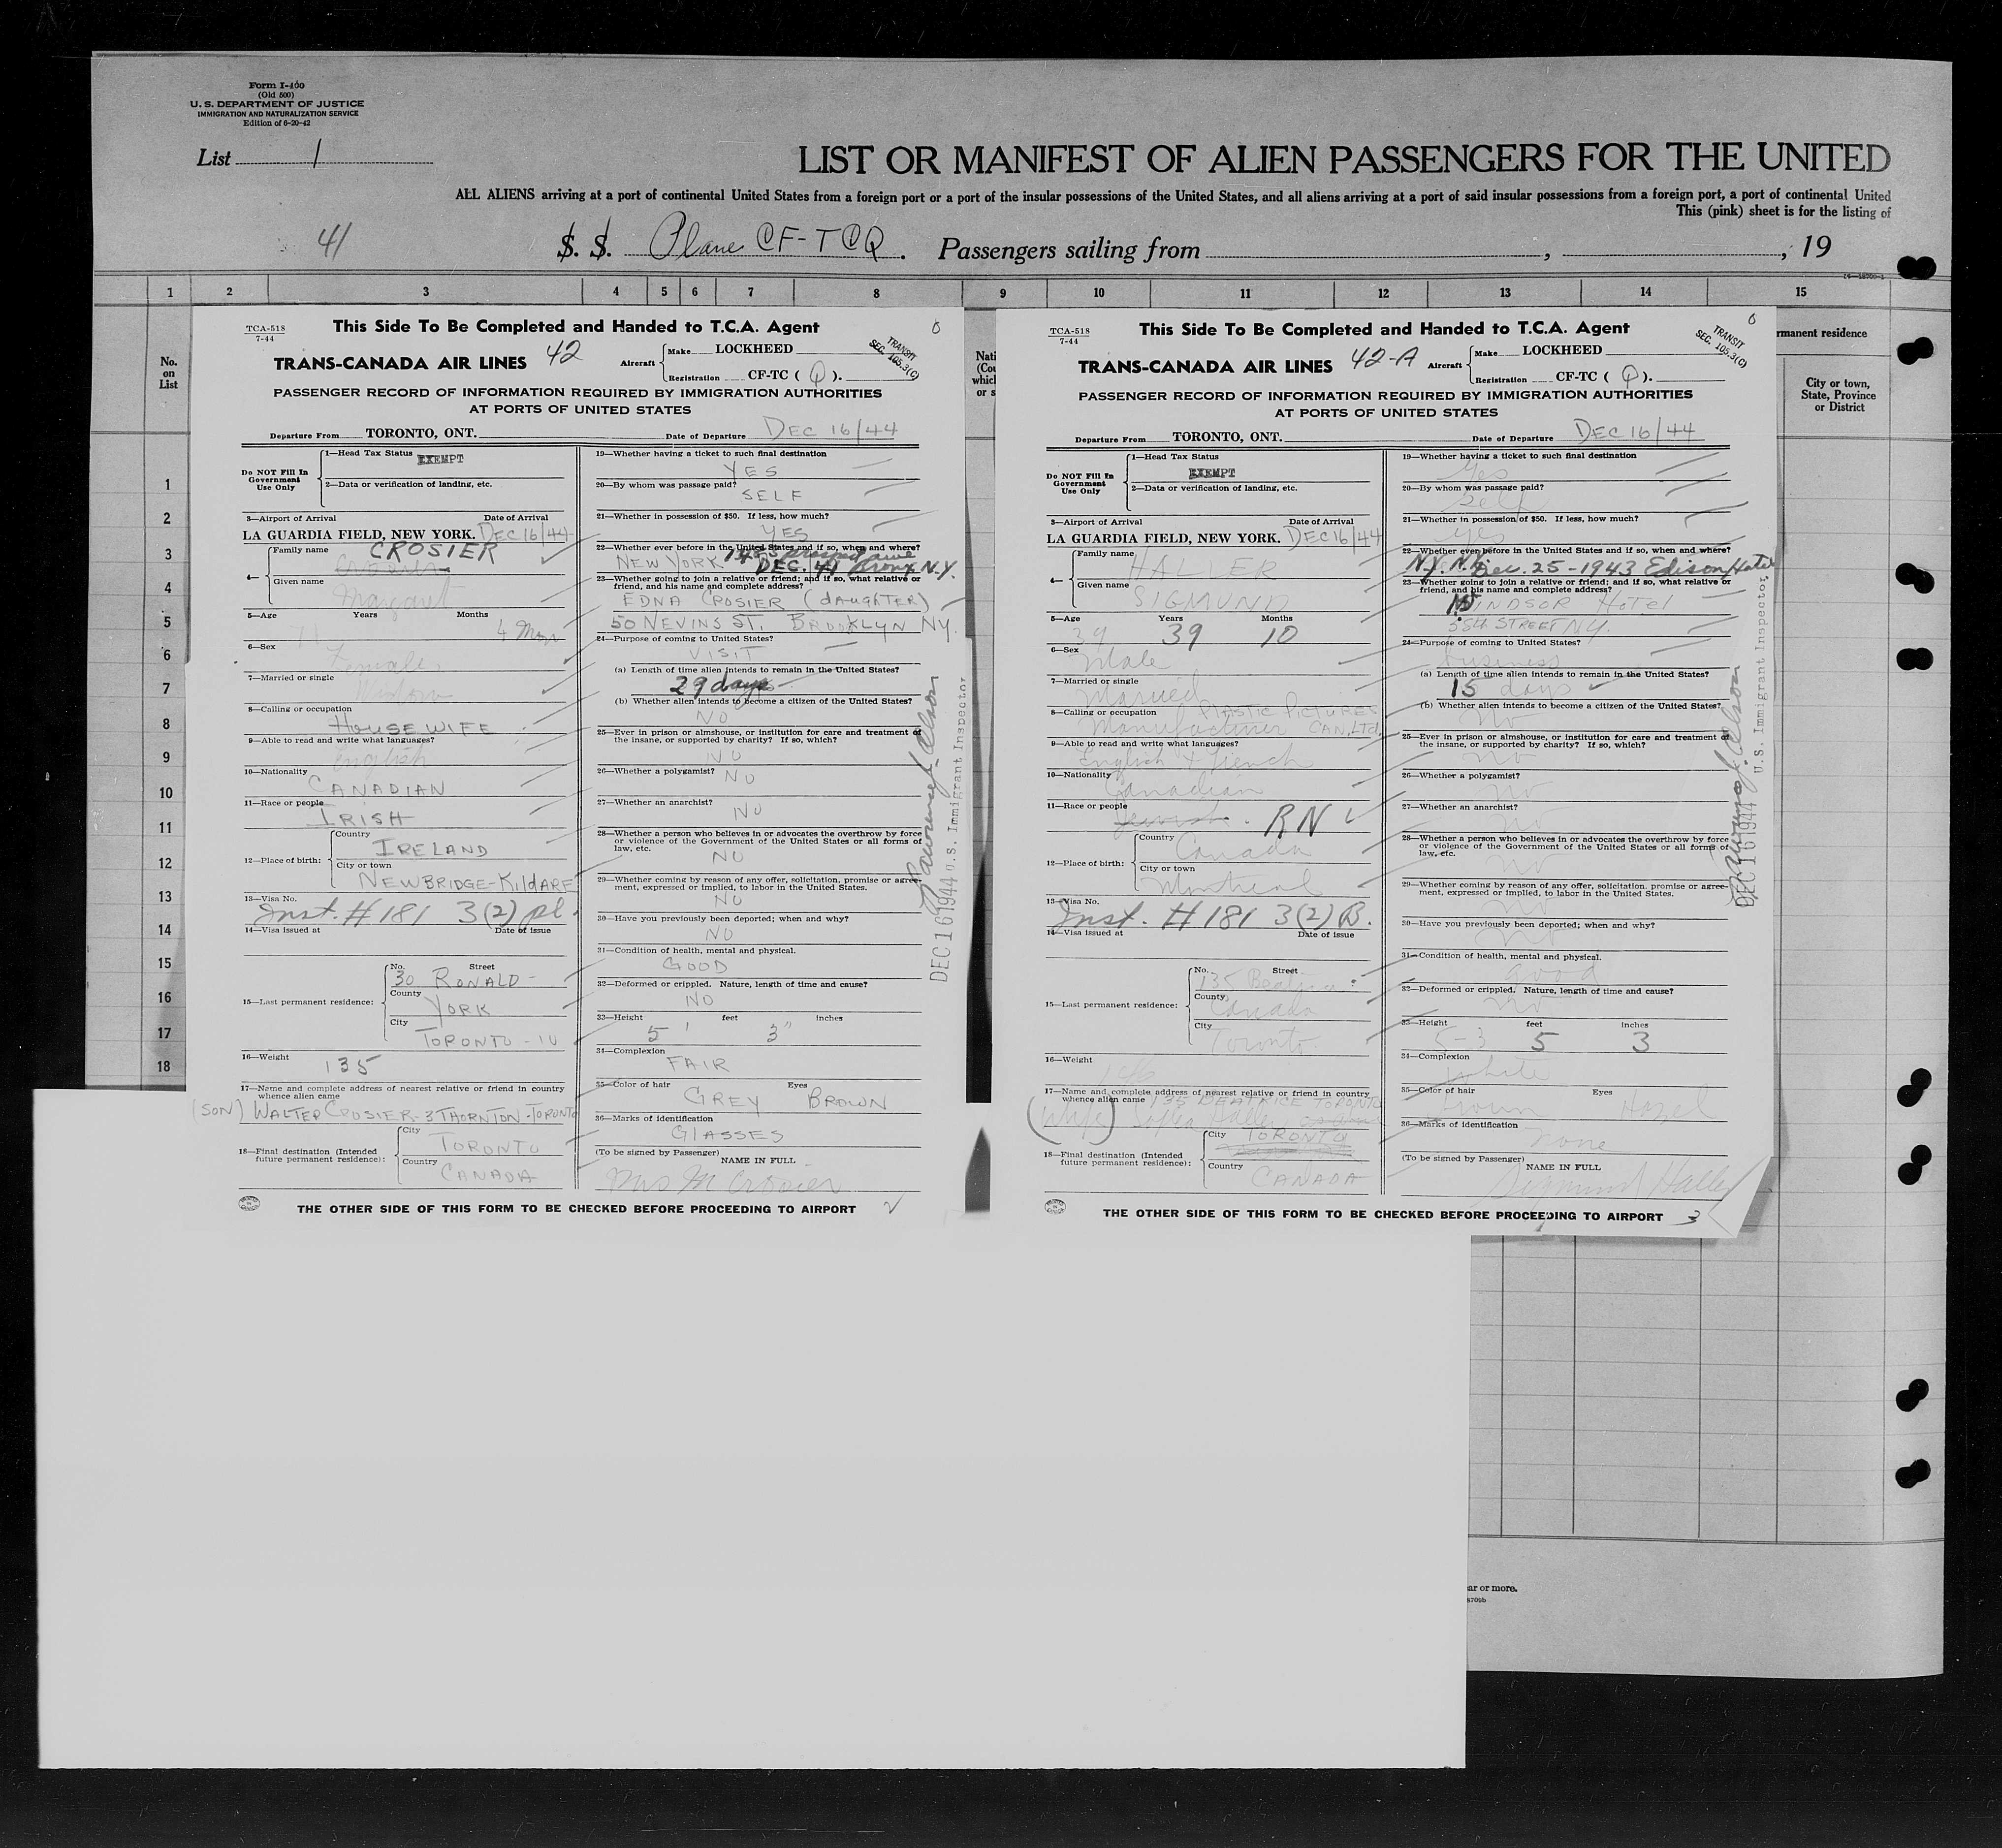 Form I-400
(Old 500)
U. S. DEPARTMENT OF JUSTICE
IMMIGRATION AND NATURALIZATION SERVICE
Edition of 6-20-42
List 1
LIST OR MANIFEST OF ALIEN PASSENGERS FOR THE UNITED
ALL ALIENS arriving at a port of continental United States from a foreign port or a port of the insular possessions of the United States, and all aliens arriving at a port of said insular possessions from a foreign port, a port of continental United
This (pink) sheet is for the listing of
41
S. S. Plane CF-TCQ. Passengers sailing from , , 19
1 2 3 4 5 6 7 8 9 10 11 12 13 14 15
No.
on
List
1
2
3
4
5
6
7
8
9
10
11
12
13
14
15
16
17
18
TCA-518
7-44
This Side To Be Completed and Handed to T.C.A. Agent
0
TRANS-CANADA AIR LINES 42
Aircraft
Make LOCKHEED
Registration CF-TC ( Q ).
TRANSIT
SEC. 105.3(C)
PASSENGER RECORD OF INFORMATION REQUIRED BY IMMIGRATION AUTHORITIES
AT PORTS OF UNITED STATES
Departure From TORONTO, ONT. Date of Departure DEC 16/44
Do NOT Fill In
Government
Use Only
1—Head Tax Status EXEMPT
2—Data or verification of landing, etc.
3—Airport of Arrival Date of Arrival
LA GUARDIA FIELD, NEW YORK. DEC 16/44
4— Family name CROSIER
Given name Margaret
5—Age Years Months
71 4 Mon
6—Sex Female
7—Married or single Widow
8—Calling or occupation
HOUSEWIFE
9—Able to read and write what languages?
English
10—Nationality
CANADIAN
11—Race or people
IRISH
12—Place of birth:
Country
IRELAND
City or town
NEWBRIDGE-KILDARE
13—Visa No.
Inst. #181 3(2) pl.
14—Visa issued at Date of issue
15—Last permanent residence:
No. Street
30 RONALD
County
YORK
City
TORONTO - 10
16—Weight 135
17—Name and complete address of nearest relative or friend in country
whence alien came
(SON) WALTER CROSIER-3 THORNTON-TORONTO
18—Final destination (Intended
future permanent residence):
City
TORONTO
Country
CANADA
19—Whether having a ticket to such final destination
YES
20—By whom was passage paid?
SELF
21—Whether in possession of $50. If less, how much?
YES
22—Whether ever before in the United States and if so, when and where?
NEW YORK DEC. 41 Bronx N.Y.
23—Whether going to join a relative or friend; and if so, what relative or
friend, and his name and complete address?
EDNA CROSIER (DAUGHTER)
50 NEVINS ST. BROOKLYN NY.
24—Purpose of coming to United States?
VISIT
(a) Length of time alien intends to remain in the United States?
29 days
(b) Whether alien intends to become a citizen of the United States?
NO
25—Ever in prison or almshouse, or institution for care and treatment of
the insane, or supported by charity? If so, which?
NO
26—Whether a polygamist? NO
27—Whether an anarchist?
NO
28—Whether a person who believes in or advocates the overthrow by force
or violence of the Government of the United States or all forms of
law, etc.
NO
29—Whether coming by reason of any offer, solicitation, promise or agree-
ment, expressed or implied, to labor in the United States.
NO
30—Have you previously been deported; when and why?
NO
31—Condition of health, mental and physical.
GOOD
32—Deformed or crippled. Nature, length of time and cause?
NO
33—Height feet inches
5' 3"
34—Complexion
FAIR
35—Color of hair Eyes
GREY BROWN
36—Marks of identification
GLASSES
(To be signed by Passenger)
NAME IN FULL
Mrs M Crosier
THE OTHER SIDE OF THIS FORM TO BE CHECKED BEFORE PROCEEDING TO AIRPORT
DEC 16 1944 U.S. Immigrant Inspector
Nati
(Cou
whic
or s
TCA-518
7-44
This Side To Be Completed and Handed to T.C.A. Agent
0
TRANS-CANADA AIR LINES 42-A
Aircraft
Make LOCKHEED
Registration CF-TC ( Q ).
TRANSIT
SEC. 105.3(C)
PASSENGER RECORD OF INFORMATION REQUIRED BY IMMIGRATION AUTHORITIES
AT PORTS OF UNITED STATES
Departure From TORONTO, ONT. Date of Departure DEC 16/44
Do NOT Fill In
Government
Use Only
1—Head Tax Status
EXEMPT
2—Data or verification of landing, etc.
3—Airport of Arrival Date of Arrival
LA GUARDIA FIELD, NEW YORK. DEC 16/44
4— Family name
HALLER
Given name
SIGMUND
5—Age Years Months
39 39 10
6—Sex
Male
7—Married or single
Married
8—Calling or occupation PLASTIC PICTURES
Manufacturer CAN. LTD.
9—Able to read and write what languages?
English & French
10—Nationality
Canadian
11—Race or people
Jewish. RN
12—Place of birth:
Country
Canada
City or town
Montreal
13—Visa No.
Inst. #181 3(2) B.
14—Visa issued at Date of issue
15—Last permanent residence:
No. Street
135 Beatrice
County
Canada
City
Toronto
16—Weight
146
17—Name and complete address of nearest relative or friend in country
whence alien came 135 BEATRICE TORONTO
(Wife) Haller
18—Final destination (Intended
future permanent residence):
City
TORONTO
Country
CANADA
19—Whether having a ticket to such final destination
Yes
20—By whom was passage paid?
Self
21—Whether in possession of $50. If less, how much?
Yes
22—Whether ever before in the United States and if so, when and where?
N.Y. N.Y. Dec. 25-1943 Edison Hotel
23—Whether going to join a relative or friend; and if so, what relative or
friend, and his name and complete address?
WINDSOR HOTEL
58th STREET NY.
24—Purpose of coming to United States?
business
(a) Length of time alien intends to remain in the United States?
15 days
(b) Whether alien intends to become a citizen of the United States?
No
25—Ever in prison or almshouse, or institution for care and treatment of
the insane, or supported by charity? If so, which?
no
26—Whether a polygamist?
no
27—Whether an anarchist?
no
28—Whether a person who believes in or advocates the overthrow by force
or violence of the Government of the United States or all forms of
law, etc.
no
29—Whether coming by reason of any offer, solicitation, promise or agree-
ment, expressed or implied, to labor in the United States.
no
30—Have you previously been deported; when and why?
no
31—Condition of health, mental and physical.
good
32—Deformed or crippled. Nature, length of time and cause?
no
33—Height feet inches
5-3 5 3
34—Complexion
white
35—Color of hair Eyes
brown Hazel
36—Marks of identification
none
(To be signed by Passenger)
NAME IN FULL
Sigmund Haller
THE OTHER SIDE OF THIS FORM TO BE CHECKED BEFORE PROCEEDING TO AIRPORT 3
DEC 16 1944 U.S. Immigrant Inspector
rmanent residence
City or town,
State, Province
or District
ar or more.